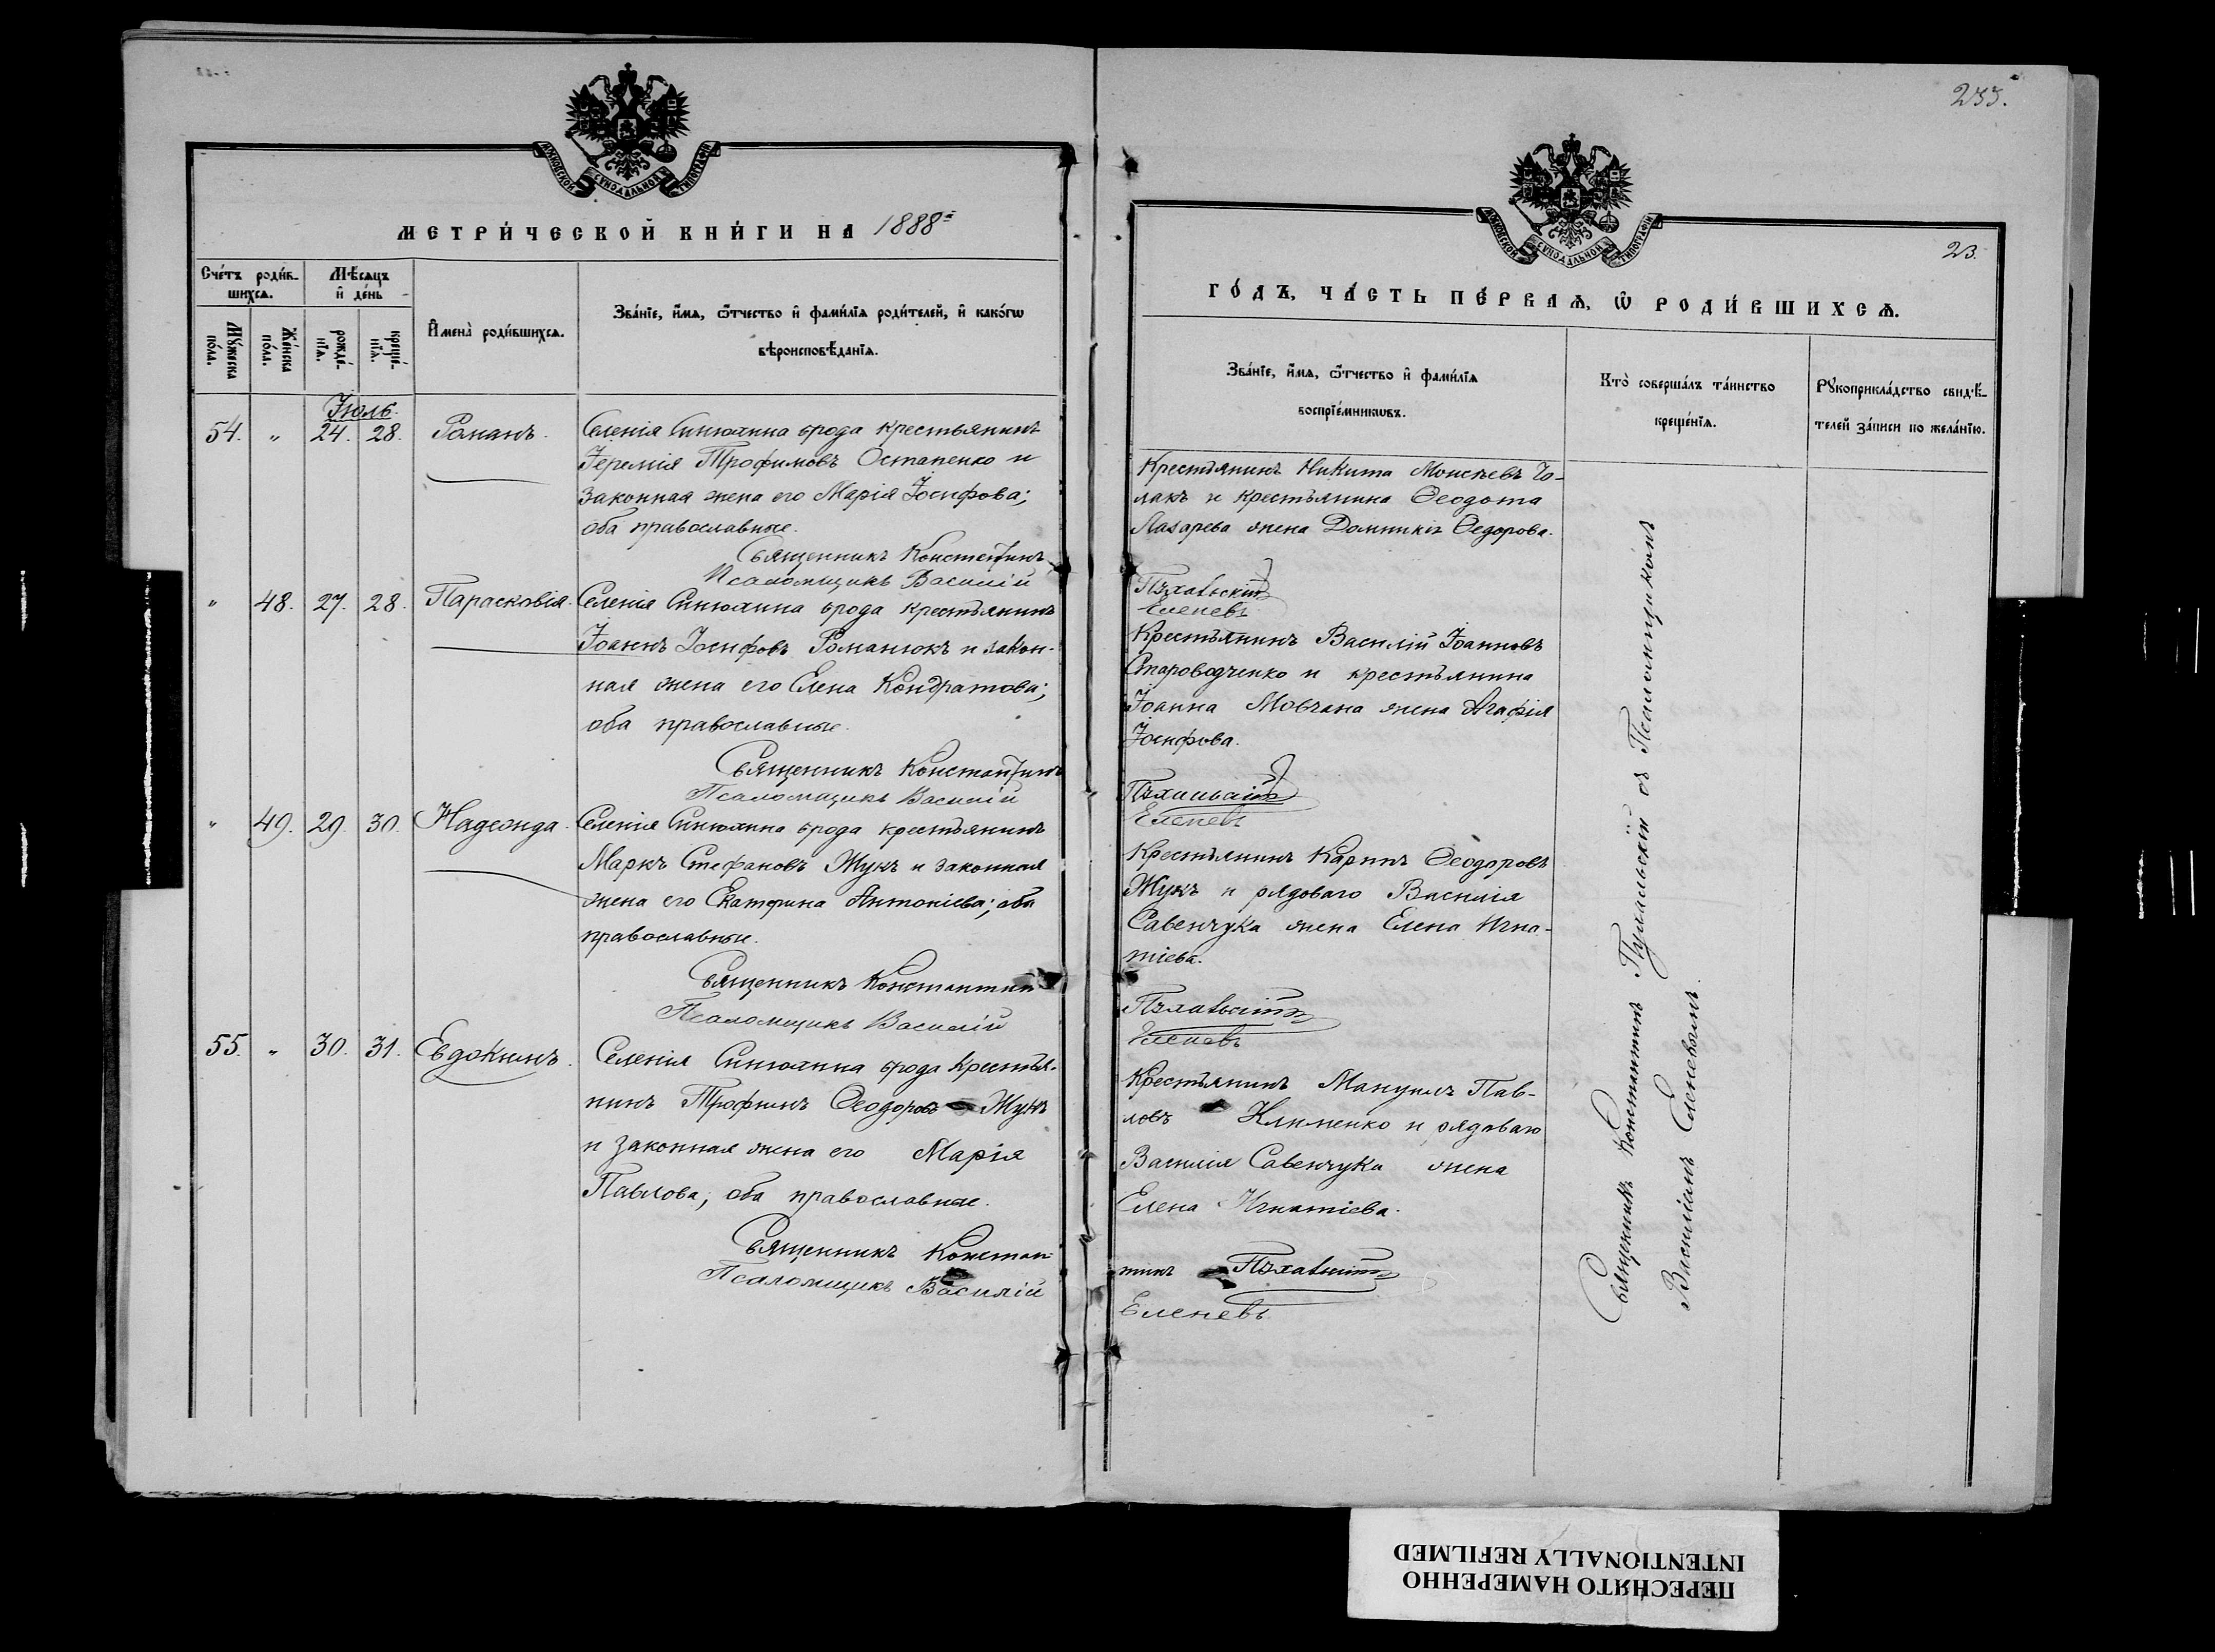 МЕТРИ́ЧЕСКОЙ КНИ́ГИ НА 1888й
Сче́тъ роди́в-
шихсѧ.
Мѣ́сѧцъ
и҆ де́нь
Мꙋ́жеска
по́ла.
Же́нска
по́ла.
рожде́-
нїѧ.
креще́-
нїѧ.
И҆мена̀ роди́вшихсѧ.
Зва́нїе, и҆́мѧ, ѻ҆́тчество и҆ фами́лїѧ роди́телей, и҆ како́гѡ
вѣроисповѣ́данїѧ.
Іюль.
54. " 24. 28. Романъ.
Селенія Синюхина брода крестьянинъ
Іеремія Трофимовъ Остапенко и
законная жена его Марія Іосифова;
оба православные.
Священникъ Константинъ
Псаломщикъ Василій
" 48. 27. 28. Парасковія.
Селенія Синюхина брода крестьянинъ
Іоаннъ Іосифовъ Романюкъ и закон-
ная жена его Елена Кондратова;
оба православные.
Священникъ Константинъ
Псаломщикъ Василій
" 49. 29. 30. Надежда.
Селенія Синюхина брода крестьянинъ
Маркъ Стефановъ Жукъ и законная
жена его Екатерина Антоніева; оба
православные.
Священникъ Константинъ
Псаломщикъ Василій
55. " 30. 31. Евдокимъ.
Селенія Синюхина брода крестья-
нинъ Трофимъ Ѳеодоровъ Жукъ
и законная жена его Марія
Павлова; оба православные.
Священникъ Констан-
Псаломщикъ Василій
233.
23.
ГО́ДЪ, ЧА́СТЬ ПЕ́РВАѦ, Ѡ҆ РОДИ́ВШИХСѦ.
Зва́нїе, и҆́мѧ, ѻ҆́тчество и҆ фами́лїѧ
воспрїе́мникѡвъ.
Кто̀ соверша́лъ та́инство
креще́нїѧ.
Рꙋкоприкла́дство свидѣ́-
телей за́писи по жела́нїю.
Крестьянинъ Никита Моисѣевъ Чо-
лакъ и крестьянина Ѳеодота
Лазарева жена Домникія Ѳедорова.
Еленевъ
Крестьянинъ Василій Іоанновъ
Староводченко и крестьянина
Іоанна Мовчана жена Агафія
Іосифова.
Еленевъ
Крестьянинъ Карпъ Ѳеодоровъ
Жукъ и рядоваго Василія
Савенчука жена Елена Игна-
тіева.
Еленевъ
Крестьянинъ Мануилъ Пав-
ловъ Клименко и рядоваго
Василія Савенчука жена
Елена Игнатіева.
тинъ
Еленевъ
Священникъ Константинъ съ Псаломщикомъ
Василіемъ Еленевымъ.
ПЕРЕСНЯТО НАМЕРЕННО
INTENTIONALLY REFILMED